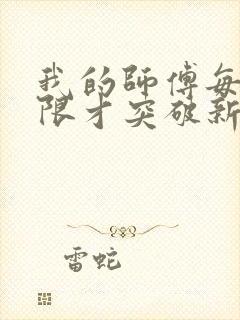 我的師傅每
限才突破新
雷蛇